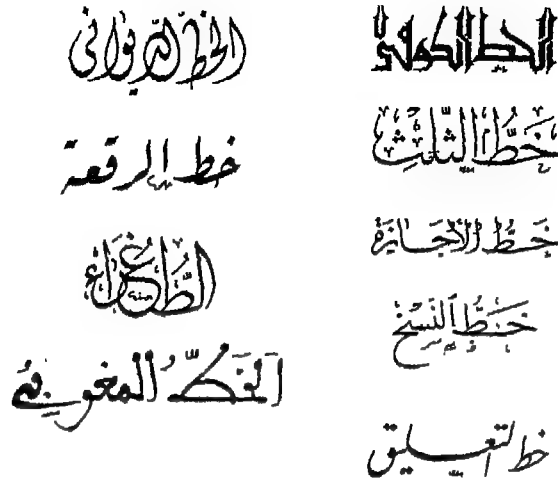 الخط الكوفي
خط الثلث
خط الإجازة
خط النسخ
خط التعليق
الخط الديواني
خط الرقعة
الطغراء
الخط المغربي